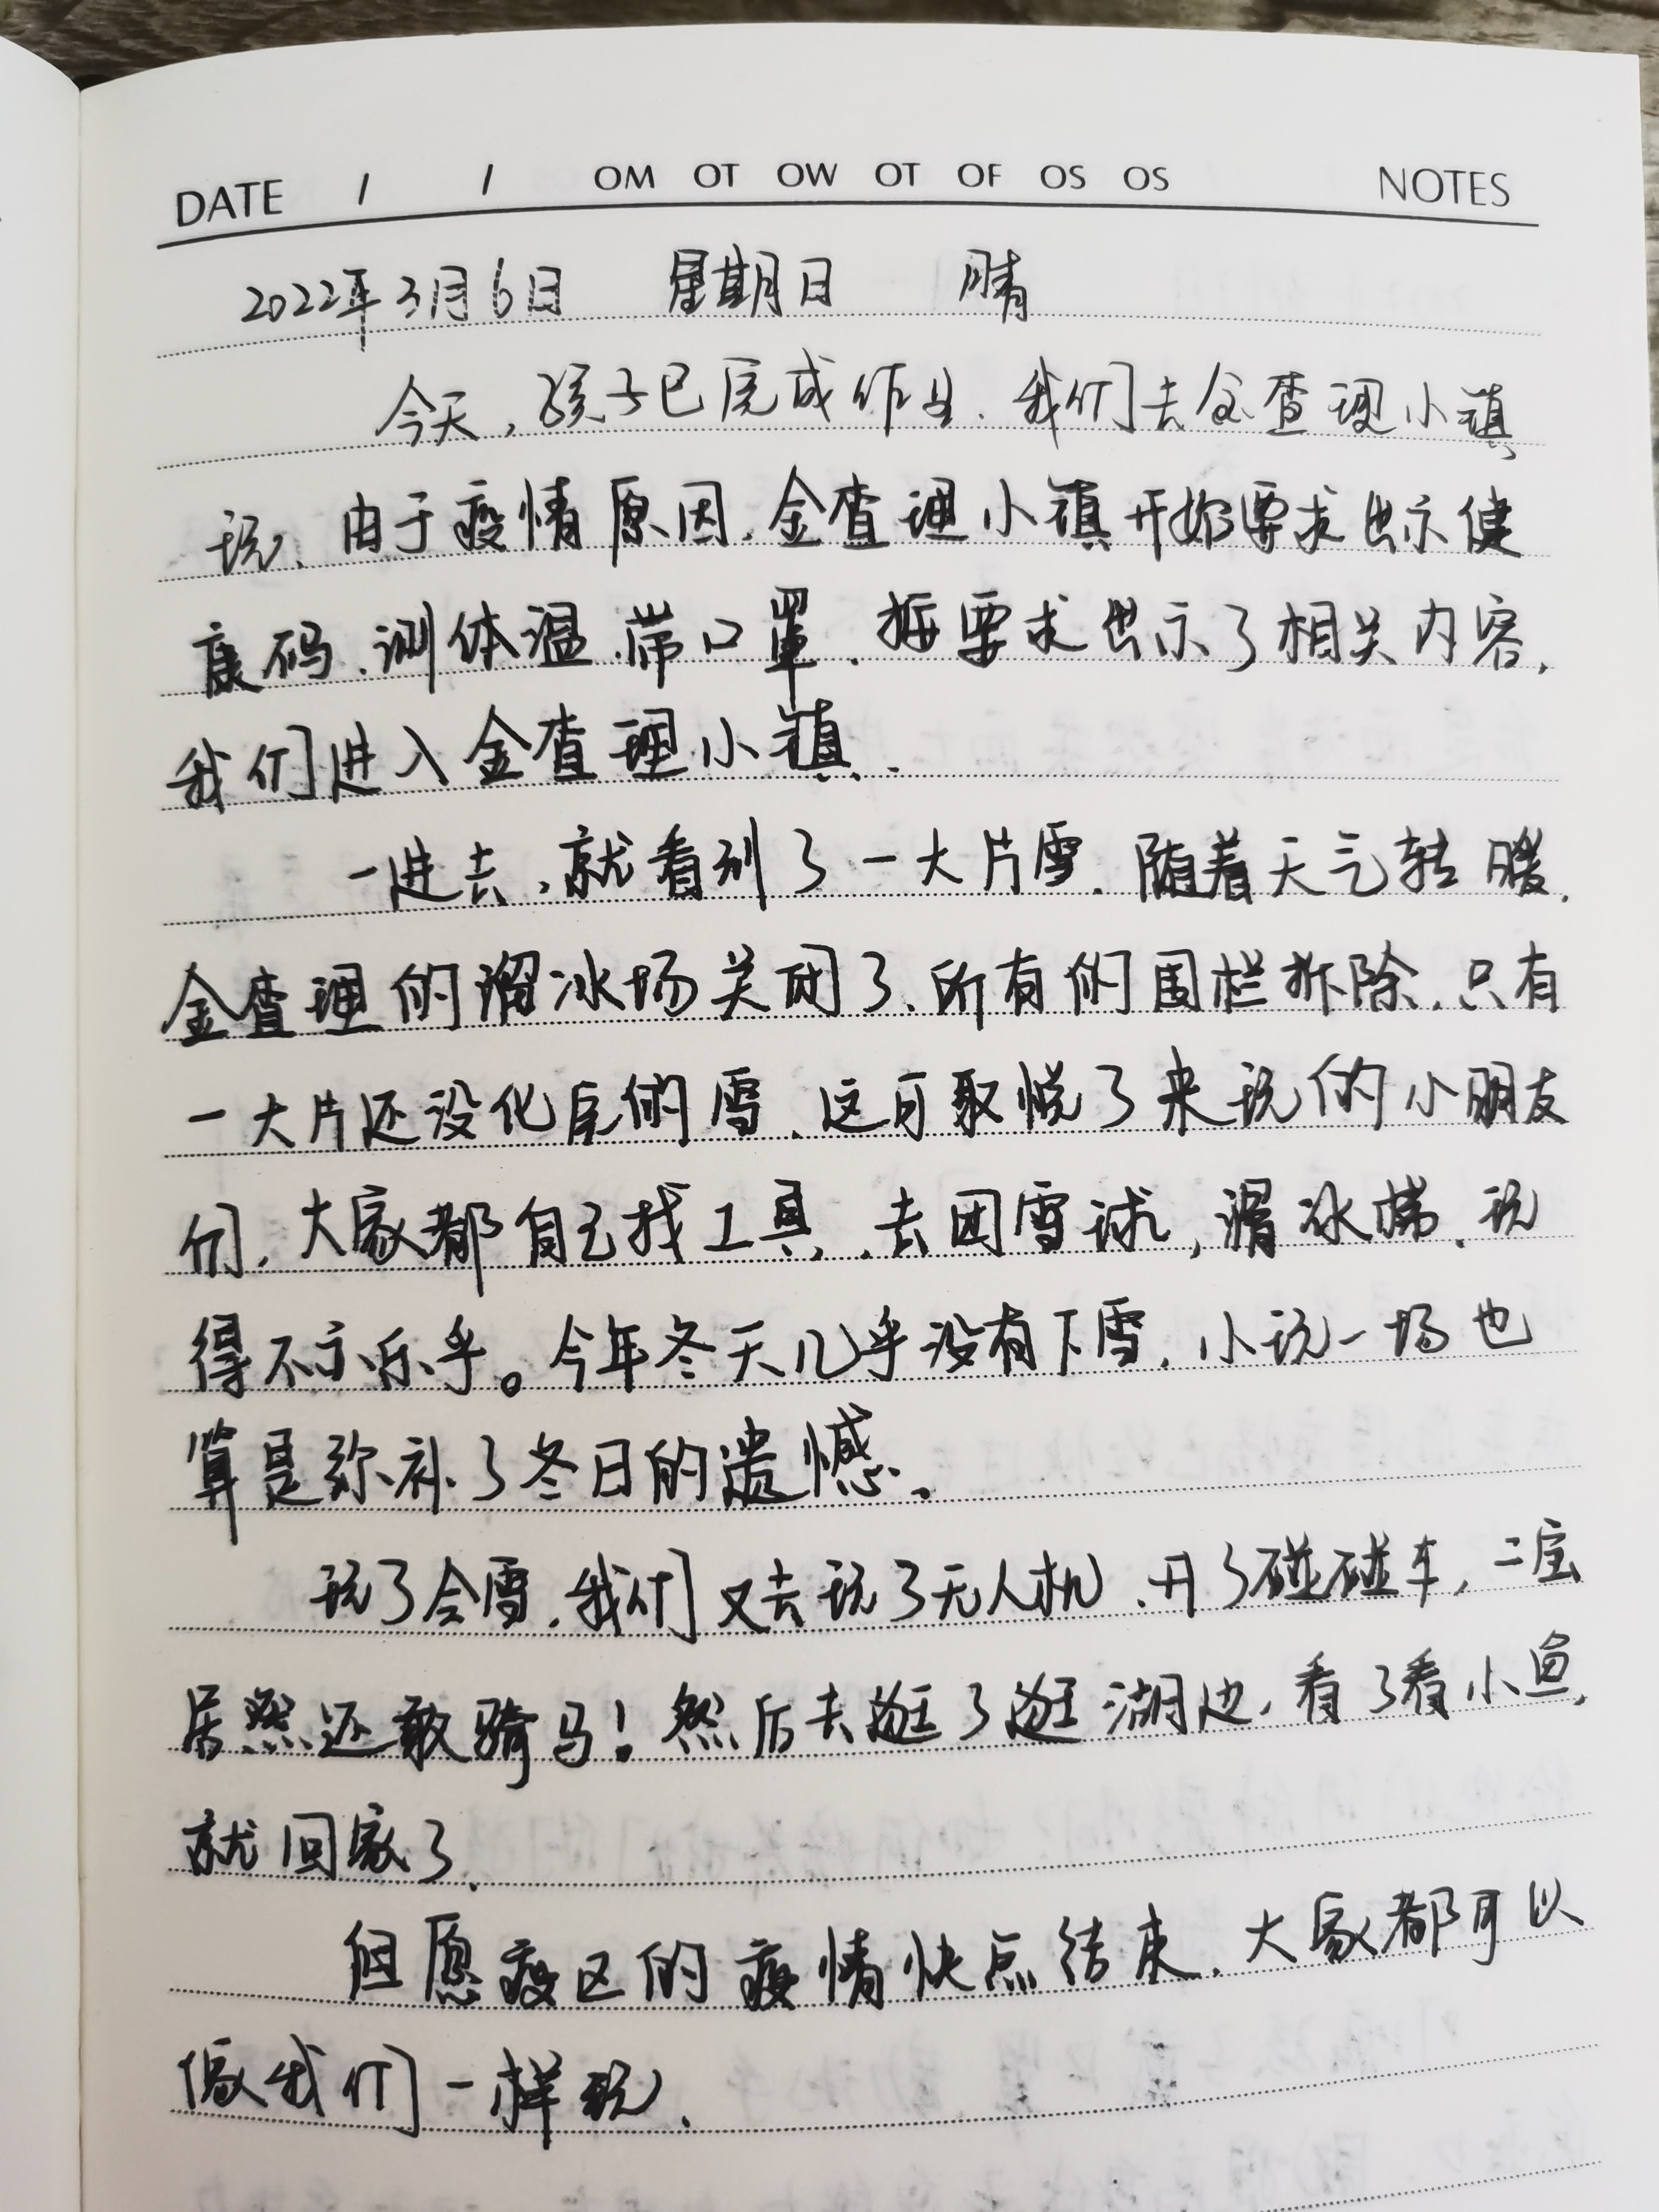 DATE / / OM OT OW OT OF OS OS NOTES
2022年3月6日 星期日 晴
今天，孩子已完成作业．我们去金查理小镇
玩．由于疫情原因．金查理小镇开始要求出示健
康码．测体温．带口罩．按要求出示了相关内容．
我们进入金查理小镇．
一进去．就看到了一大片雪．随着天气转暖．
金查理的溜冰场关闭了．所有的围栏拆除．只有
一大片还没化完的雪．这可取悦了来玩的小朋友
们．大家都自己找工具．去团雪球，滑冰梯．玩
得不亦乐乎。今年冬天几乎没有下雪．小玩一场也
算是弥补了冬日的遗憾．
玩了会雪．我们又去玩了无人机．开了碰碰车，二宝
居然还敢骑马！然后去逛了逛湖边，看了看小鱼．
就回家了．
但愿疫区的疫情快点结束．大家都可以
像我们一样玩．